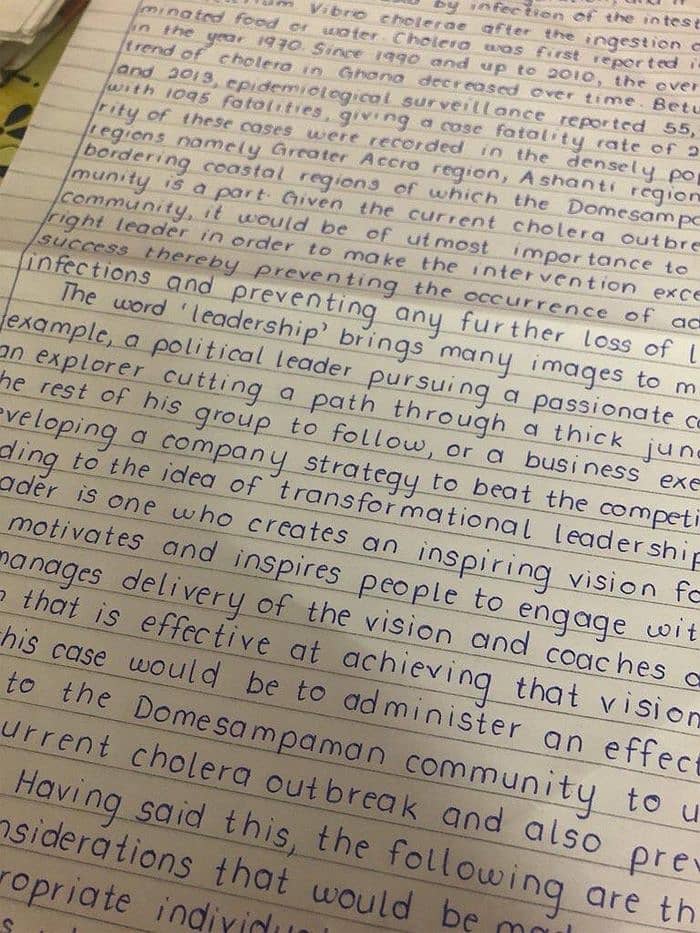 by infection of the intest
Vibrio cholerae after the ingestion
minated food or water. Cholera was first reported
in the year 1970. Since 1990 and up to 2010, the over
trend of cholera in Ghana decreased over time. Bet
and 2013, epidemiological surveillance reported 55,
with 1095 fatalities, giving a case fatality rate of 2
rity of these cases were recorded in the densely po
regions namely Greater Accra region, Ashanti region
bordering coastal regions of which the Domesampa
munity is a part. Given the current cholera outbre
community, it would be of utmost importance to
right leader in order to make the intervention exce
success thereby preventing the occurrence of
infections and preventing any further loss of l
The word 'leadership' brings many images to m
example, a political leader pursuing a passionate c
an explorer cutting a path through a thick jun
he rest of his group to follow, or a business exe
eveloping a company strategy to beat the competi
ding to the idea of transformational leadership
ader is one who creates an inspiring vision fo
motivates and inspires people to engage wit
manages delivery of the vision and coaches a
that is effective at achieving that vision
his case would be to administer an effect
to the Domesampaman community to u
urrent cholera outbreak and also prev
Having said this, the following are th
nsiderations that would be
ropriate